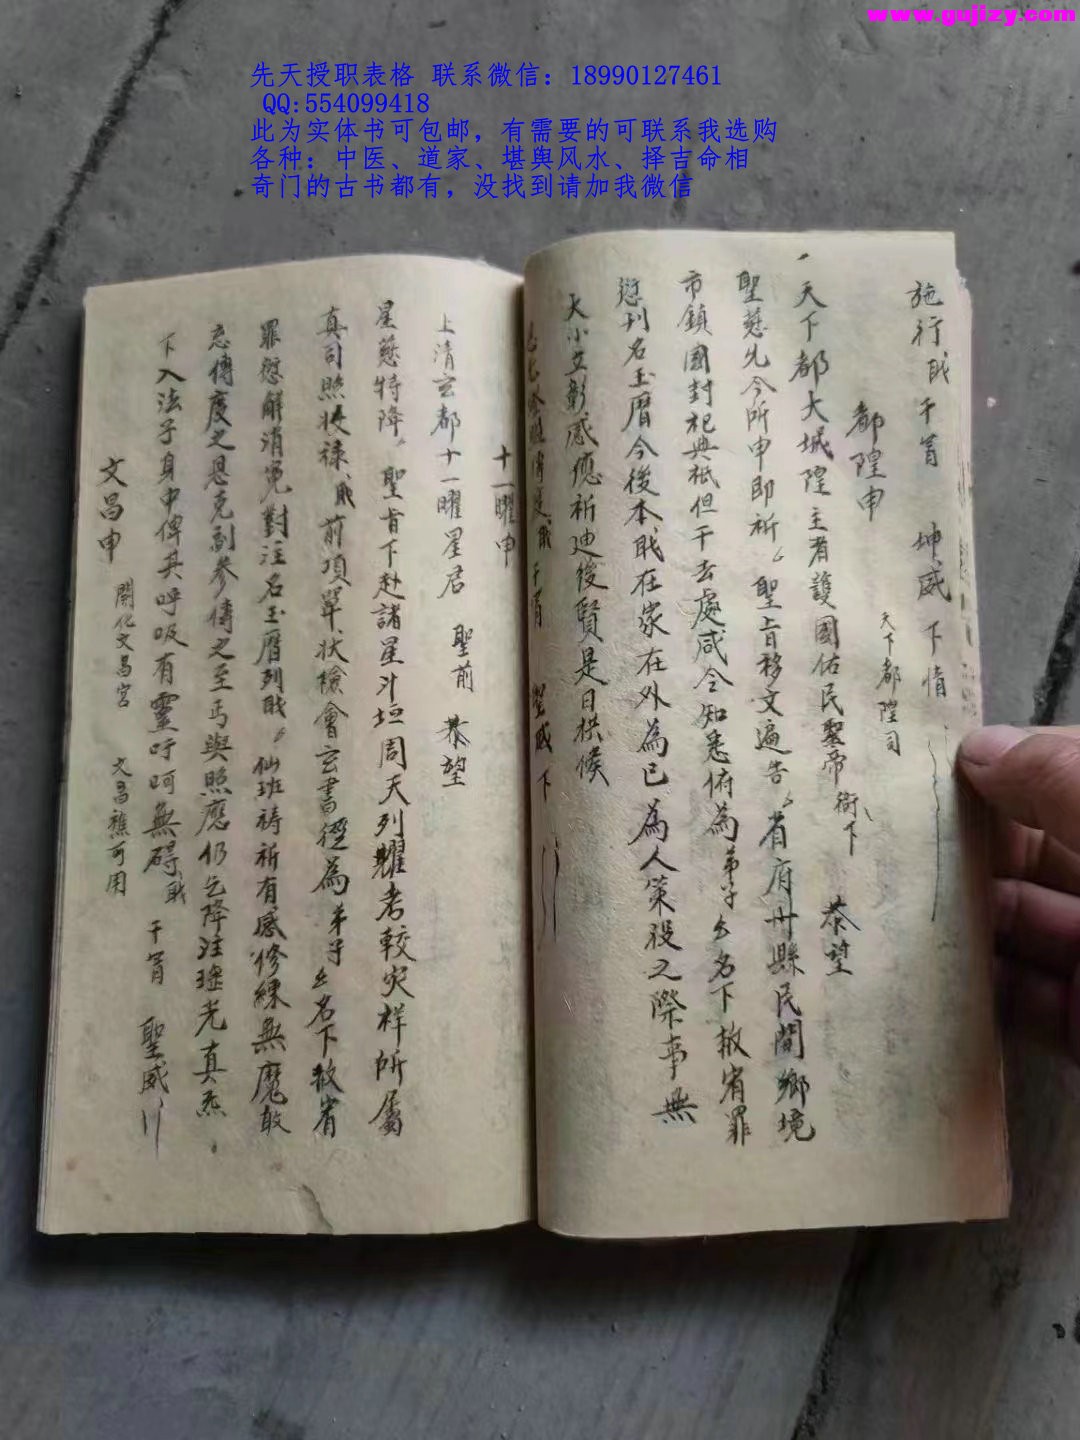 www.gujizy.com
先天授职表格 联系微信：18990127461
QQ:554099418
此为实体书可包邮，有需要的可联系我选购
各种：中医、道家、堪舆风水、择吉命相
奇门的古书都有，没找到请加我微信
施行 干冐 坤威下情
都隍申 天下都隍司
天下都大城隍主者護國佑民聖帝 衛下 恭望
聖慈允今所申即祈 聖旨移文遍告 省府州縣民間鄉境
市鎮國封祀典祇但干去處咸令知悉俯為弟子厶名下赦宥罪
愆刊名玉曆今後本 在家在外為已為人策役之際事無
大小立彰感應祈迪後賢是日拱候
干冐 聖威下
十一曜申
上清玄都十一曜星君 聖前 恭望
星慈特降 聖旨下赴諸星斗垣周天列耀考較灾祥所屬
真司照 祿 前項單狀檢會玄書徑為弟子厶名下赦宥
罪愆解消冤對注名玉曆列 仙班祷祈有感修練無魔敢
忘傳度之恩克副參傳之至丐與照應仍乞降注瑤光真炁
下入法子身中俾其呼吸有靈吁呵無碍 干冐 聖威
文昌申 開化文昌宮 文昌醮可用